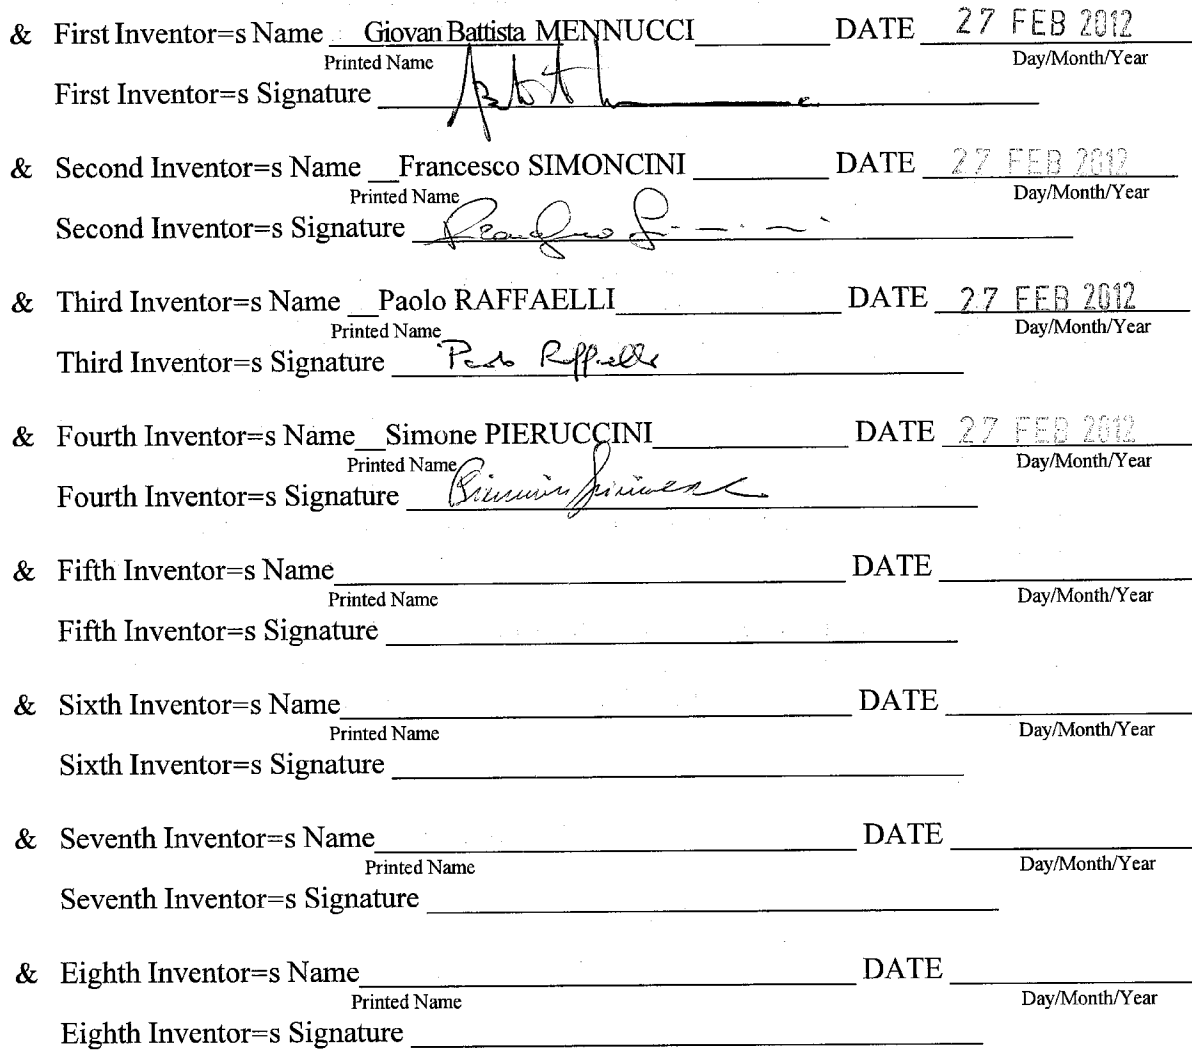 & First Inventor=s Name Giovan Battista MENNUCCI DATE 27 FEB 2012
Printed Name Day/Month/Year
First Inventor=s Signature
& Second Inventor=s Name Francesco SIMONCINI DATE 27 FEB 2012
Printed Name Day/Month/Year
Second Inventor=s Signature
& Third Inventor=s Name Paolo RAFFAELLI DATE 27 FEB 2012
Printed Name Day/Month/Year
Third Inventor=s Signature Paolo Raffaelli
& Fourth Inventor=s Name Simone PIERUCCINI DATE 27 FEB 2012
Printed Name Day/Month/Year
Fourth Inventor=s Signature
& Fifth Inventor=s Name DATE
Printed Name Day/Month/Year
Fifth Inventor=s Signature
& Sixth Inventor=s Name DATE
Printed Name Day/Month/Year
Sixth Inventor=s Signature
& Seventh Inventor=s Name DATE
Printed Name Day/Month/Year
Seventh Inventor=s Signature
& Eighth Inventor=s Name DATE
Printed Name Day/Month/Year
Eighth Inventor=s Signature